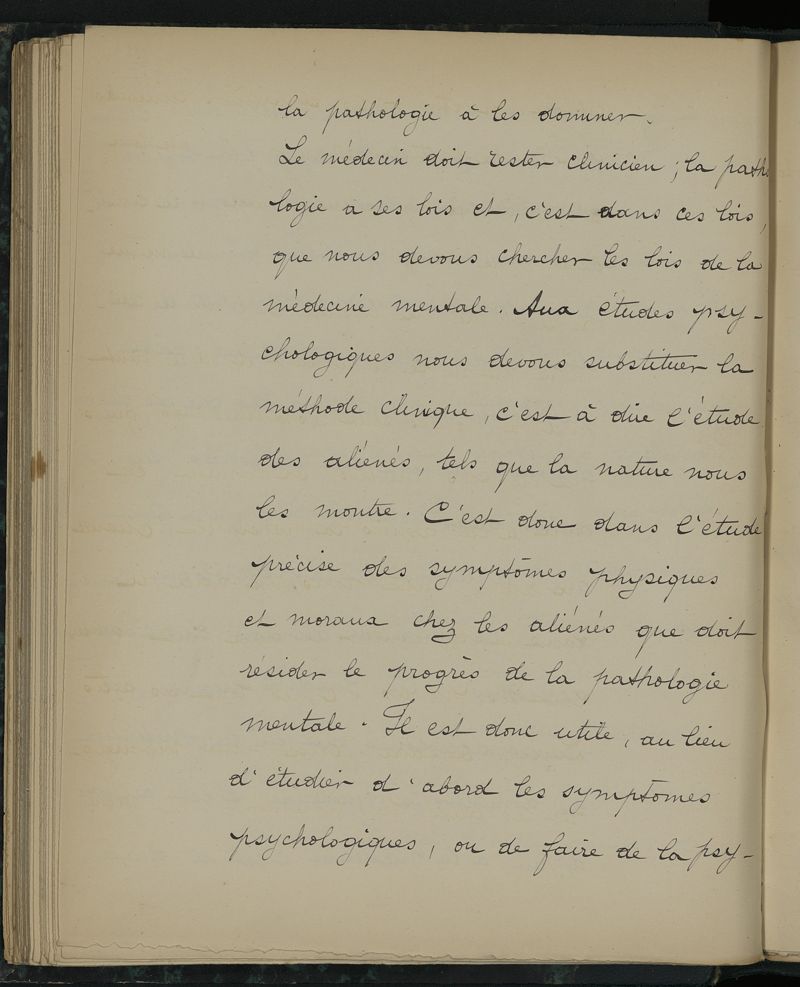 la pathologie à les dominer.
Le médecin doit rester clinicien ; la patho
logie a ses lois et, c'est dans ces lois,
que nous devons chercher les lois de la
médecine mentale. Aux études psy-
chologiques nous devons substituer la
méthode clinique, c'est à dire l'étude
des aliénés, tels que la nature nous
les montre. C'est donc dans l'étude
précise des symptômes physiques
et moraux chez les aliénés que doit
résider le progrès de la pathologie
mentale. Il est donc utile, au lieu
d'étudier d'abord les symptômes
psychologiques, ou de faire de la psy-